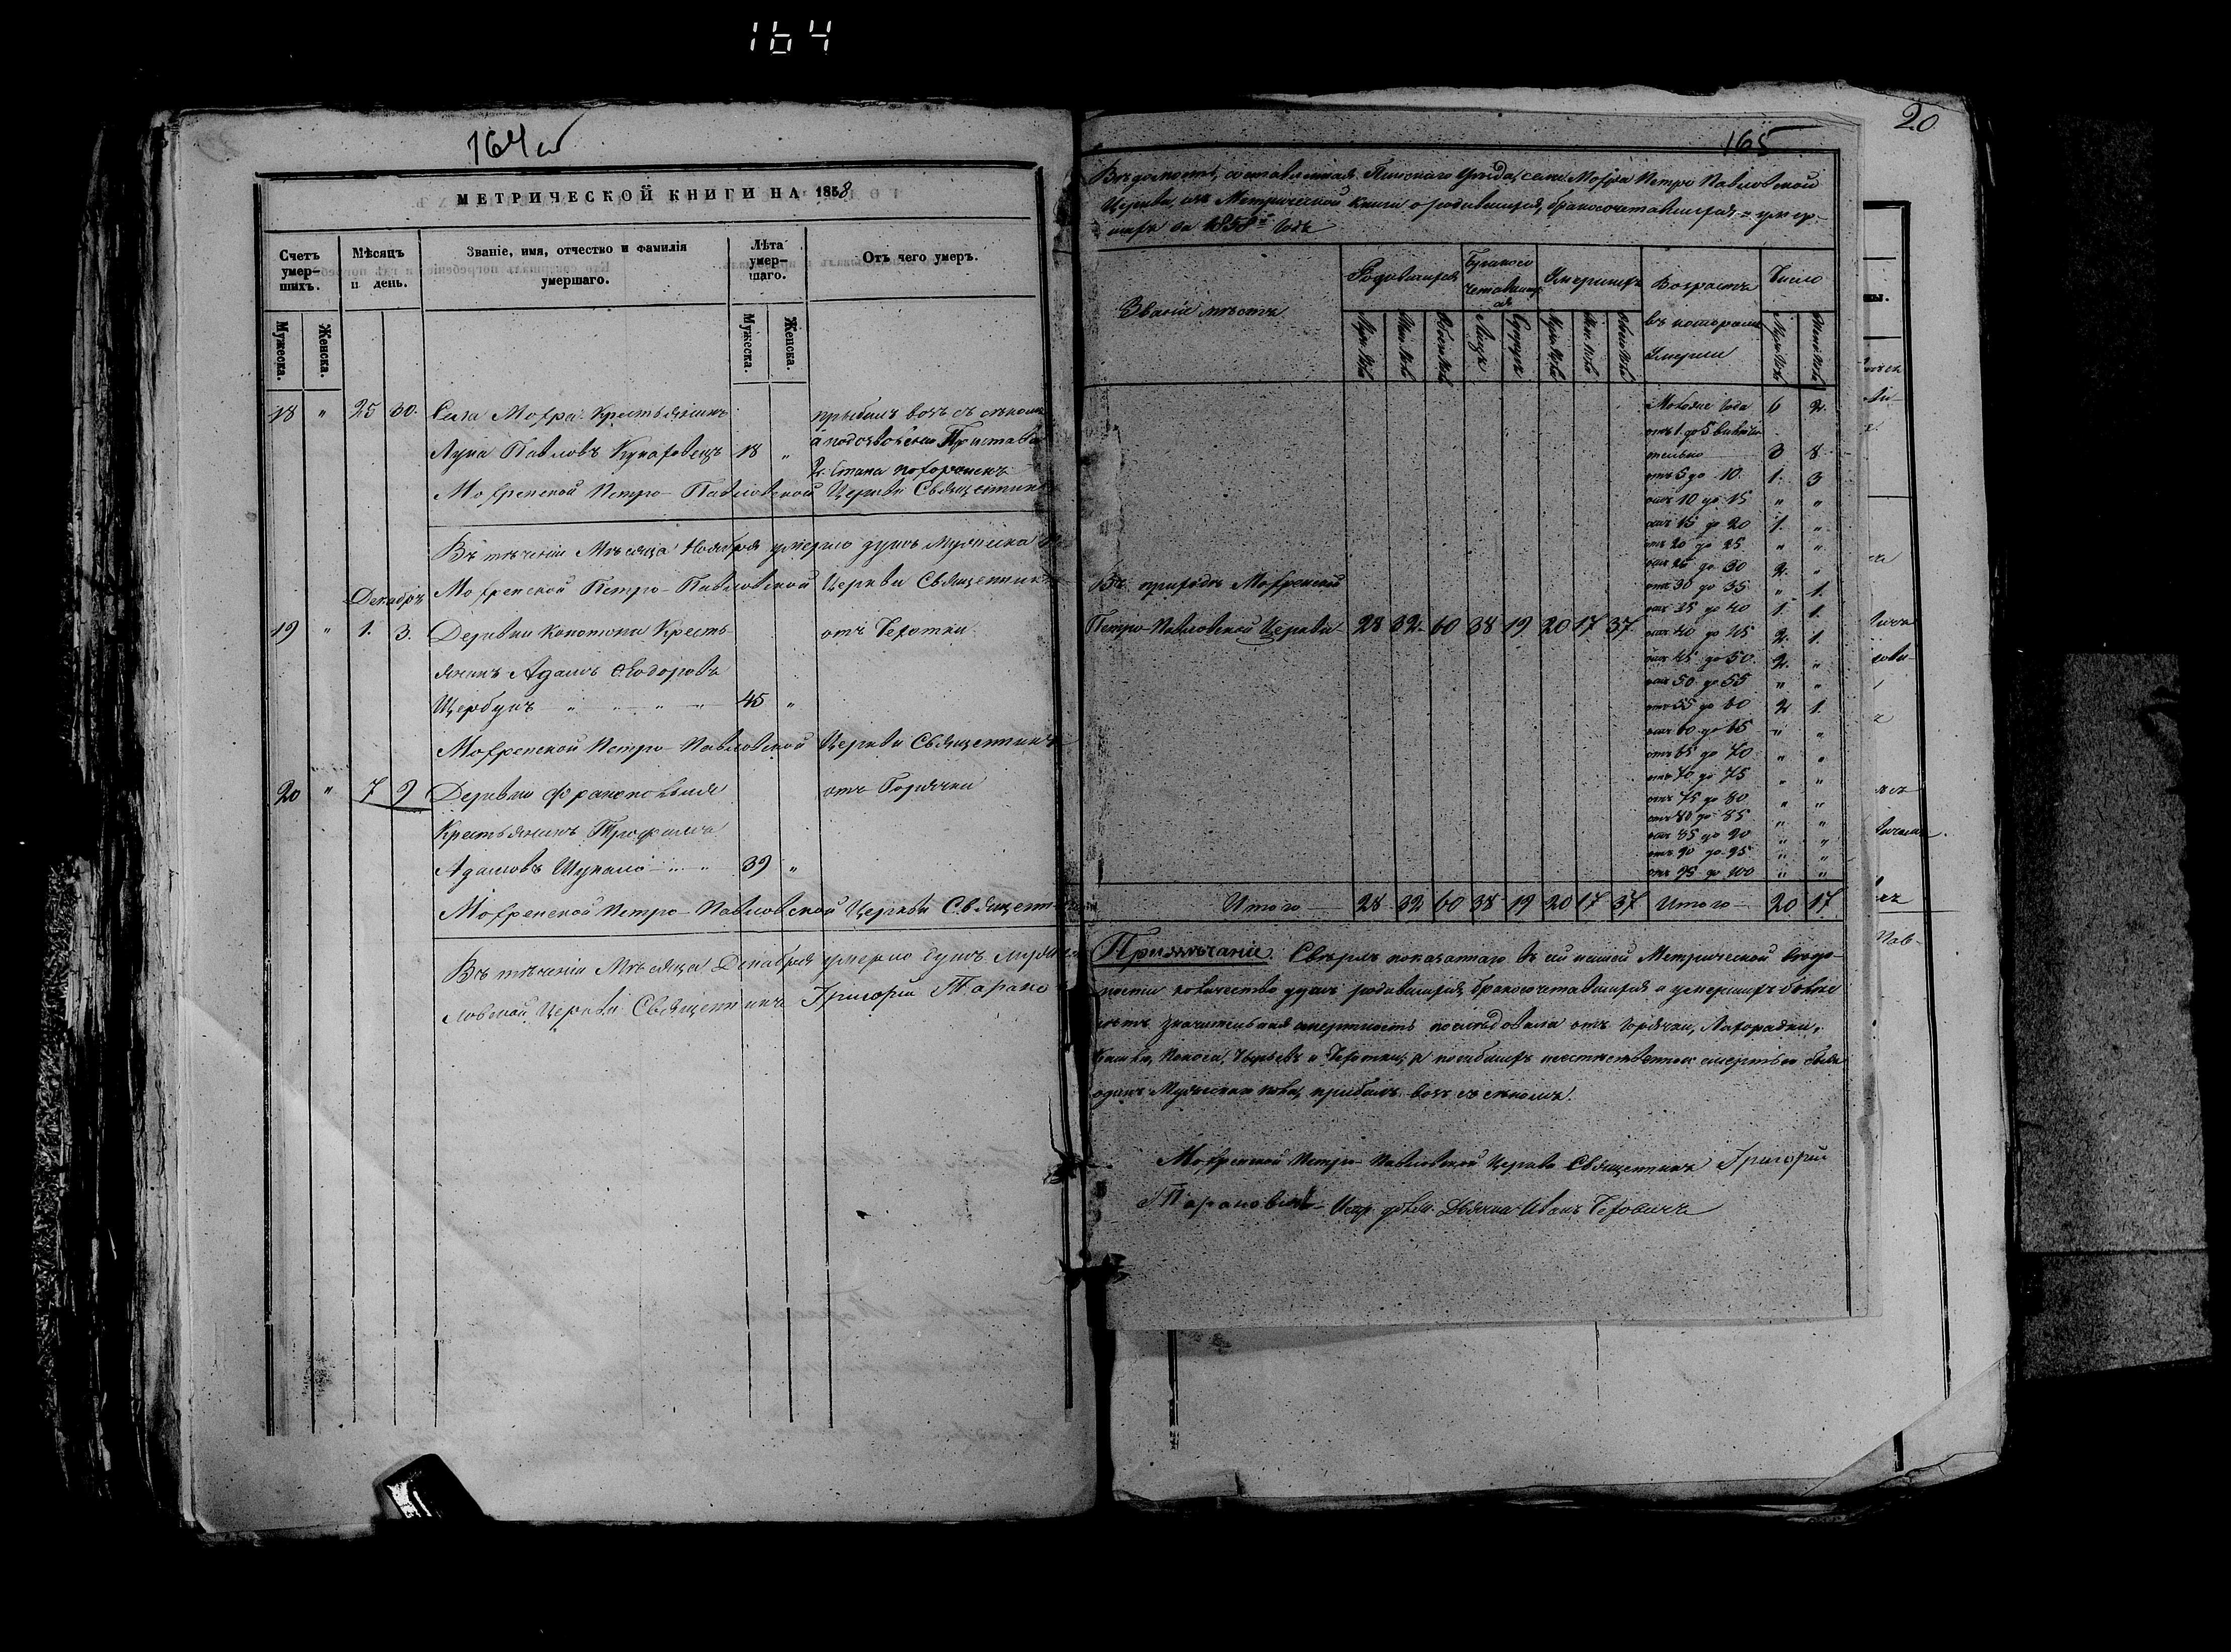 164
164 об
МЕТРИЧЕСКОЙ КНИГИ НА 1858
Счетъ умершихъ.
Мѣсяцъ и день.
Званіе, имя, отчество и фамилія умершаго.
Лѣта умершаго.
Отъ чего умеръ.
Мужеска.
Женска.
Мужеска.
Женска.
18 " 25 30. Села Мохра Крестьянинъ прыбилъ возъ съ сѣномъ
Лука Павловъ Кухаровецъ 18 " а по дозволенію Пристава
2. Стана похороненъ
Мохренской Петро-Павловской Церкви Священникъ
Въ теченіи Мѣсяца Ноября умерло душъ мужеска
Мохренской Петро-Павловской Церкви Священникъ
Декабрь
19 " 1. 3. Деревни Конотопа Кресть- отъ Чехотки
янинъ Адамъ Ѳеодоровъ
Щербунъ " " " " 45 "
Мохренской Петро-Павловской Церкви Священникъ
20 " 7 9 Деревни отъ Горячки
Крестьянинъ Трофимъ
Адамовъ Шукало " " 39 "
Мохренской Петро-Павловской Церкви Священ
Въ теченіи Мѣсяца Декабря умерло душъ мужеск
ловской Церкви Священникъ Григорій Тарано
20
165
Вѣдомость, составленная Пинскаго Уѣзда, села Мохра Петро Павловской
Церкви, изъ Метрической книги о родившихся, бракосочетавшихся и умер-
шихъ за 1858й Годъ
Званіе мѣстъ
Родившихся
Бракосочетавшихся
Умершихъ
Возрастъ въ которомъ Умерли
Число
Муж. Пола
Жен. Пола
Обоего Пола
Лицъ
Супруж
Муж. Пола
Жен. Пола
Обоего Пола
Муж. Пола
Жен. Пола
Моложе Года 6 2.
отъ 1. до 5 включи-
тельно 3 8.
отъ 5 до 10. 1. 3
отъ 10 до 15 " "
отъ 15 до 20 1. "
отъ 20 до 25 " "
отъ 25 до 30 2. "
отъ 30 до 35 " 1.
отъ 35 до 40 1. 1.
отъ 40 до 45 2. 1.
отъ 45 до 50. 2. "
отъ 50 до 55 " "
отъ 55 до 60 2 1.
отъ 60 до 65 " "
отъ 65 до 70 " "
отъ 70 до 75 " "
отъ 75 до 80 " "
отъ 80 до 85 " "
отъ 85 до 90 " "
отъ 90 до 95 " "
отъ 95 до 100 " "
Въ приходѣ Мохренской
Петро-Павловской Церкви 28 32. 60 38 19 20 17 37.
Итого 28 32 60 38 19 20 17 37 Итого 20 17
Примѣчаніе. Сверхъ показаннаго въ сей нашей Метрической вѣдо-
мости количество душъ родившихся, бракосочетавшихся и умершихъ
значительная смертность послѣдовала отъ Горячки, Лихорадки,
Кашля, Поноса, и Чехотки, а погибшихъ неестественною смертью былъ
одинъ Мужеска пола, прибилъ возъ съ сѣномъ.
Мохренской Петро-Павловской Церкви Священникъ Григорій
Тарановичъ Испр. долж. Дьячка Иванъ Чехович